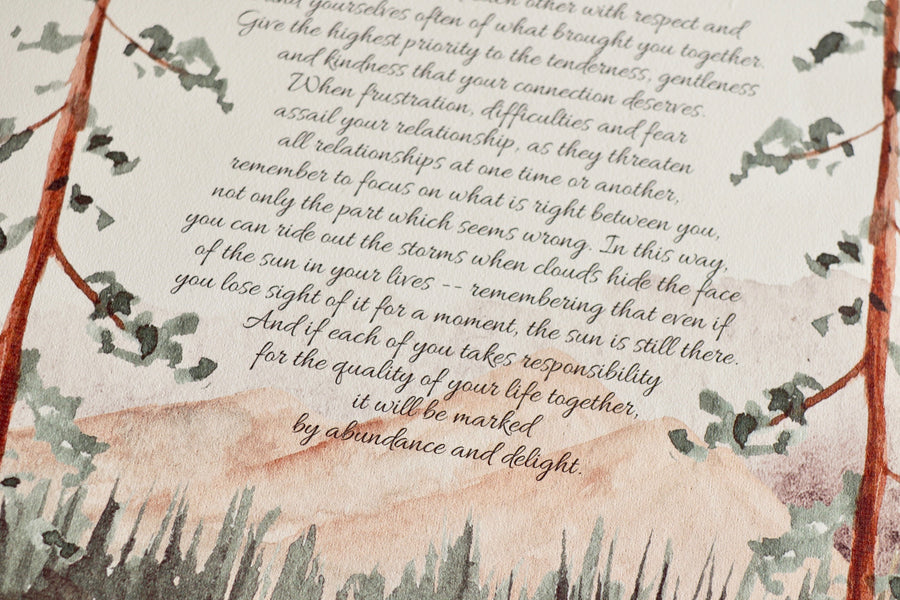 each other with respect and
and yourselves often of what brought you together.
Give the highest priority to the tenderness, gentleness
and kindness that your connection deserves.
When frustration, difficulties and fear
assail your relationship, as they threaten
all relationships at one time or another,
remember to focus on what is right between you,
not only the part which seems wrong. In this way,
you can ride out the storms when clouds hide the face
of the sun in your lives -- remembering that even if
you lose sight of it for a moment, the sun is still there.
And if each of you takes responsibility
for the quality of your life together,
it will be marked
by abundance and delight.